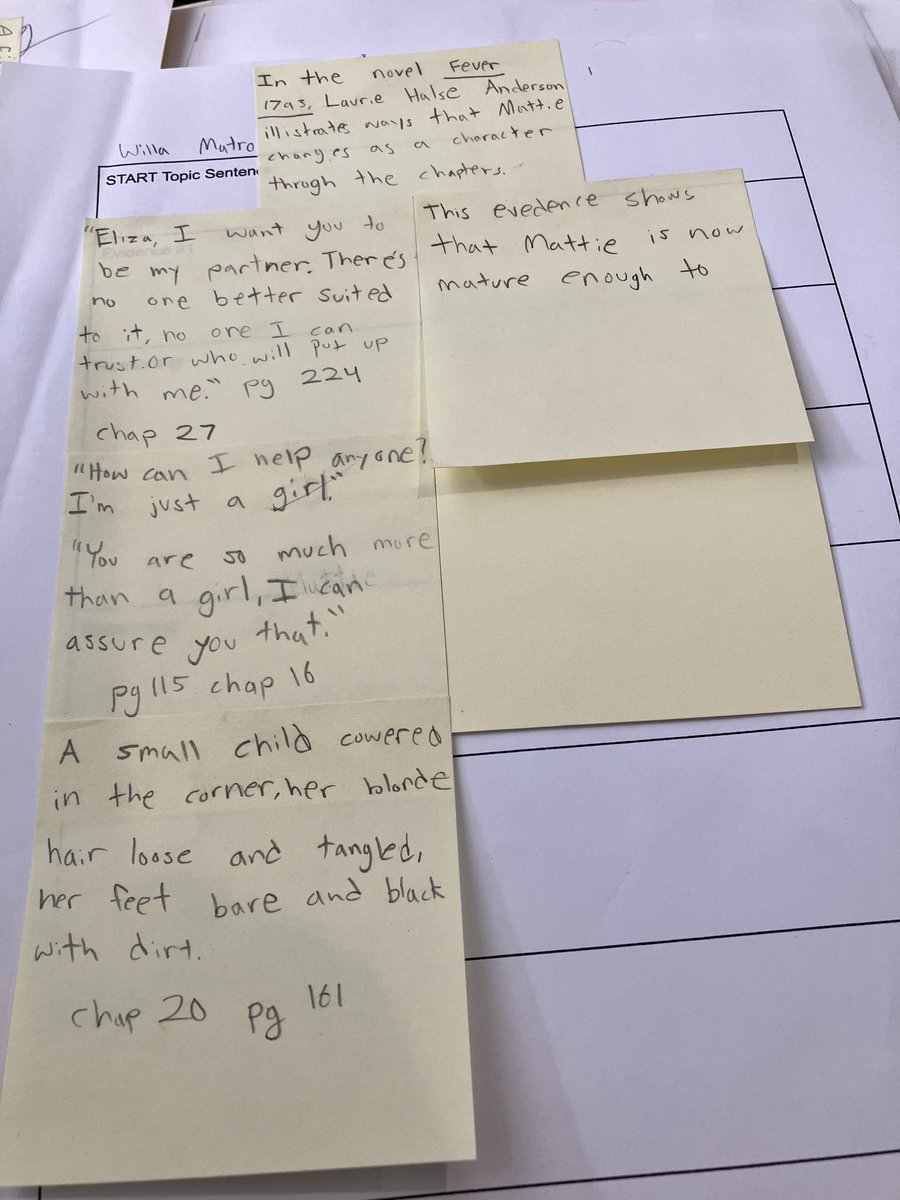 Willa Matro
START Topic Senten
In the novel Fever
1793, Laurie Halse Anderson
illistrates ways that Mattie
changes as a character
throgh the chapters.
"Eliza, I want you to
be my partner. There's
no one better suited
to it, no one I can
trust.or who will put up
with me." pg 224
chap 27
"How can I help anyone?
I'm just a girl."
"You are so much more
than a girl, I can
assure you that."
pg 115 chap 16
A small child cowered
in the corner, her blonde
hair loose and tangled,
her feet bare and black
with dirt.
chap 20 pg 161
This evedence shows
that Mattie is now
mature enough to